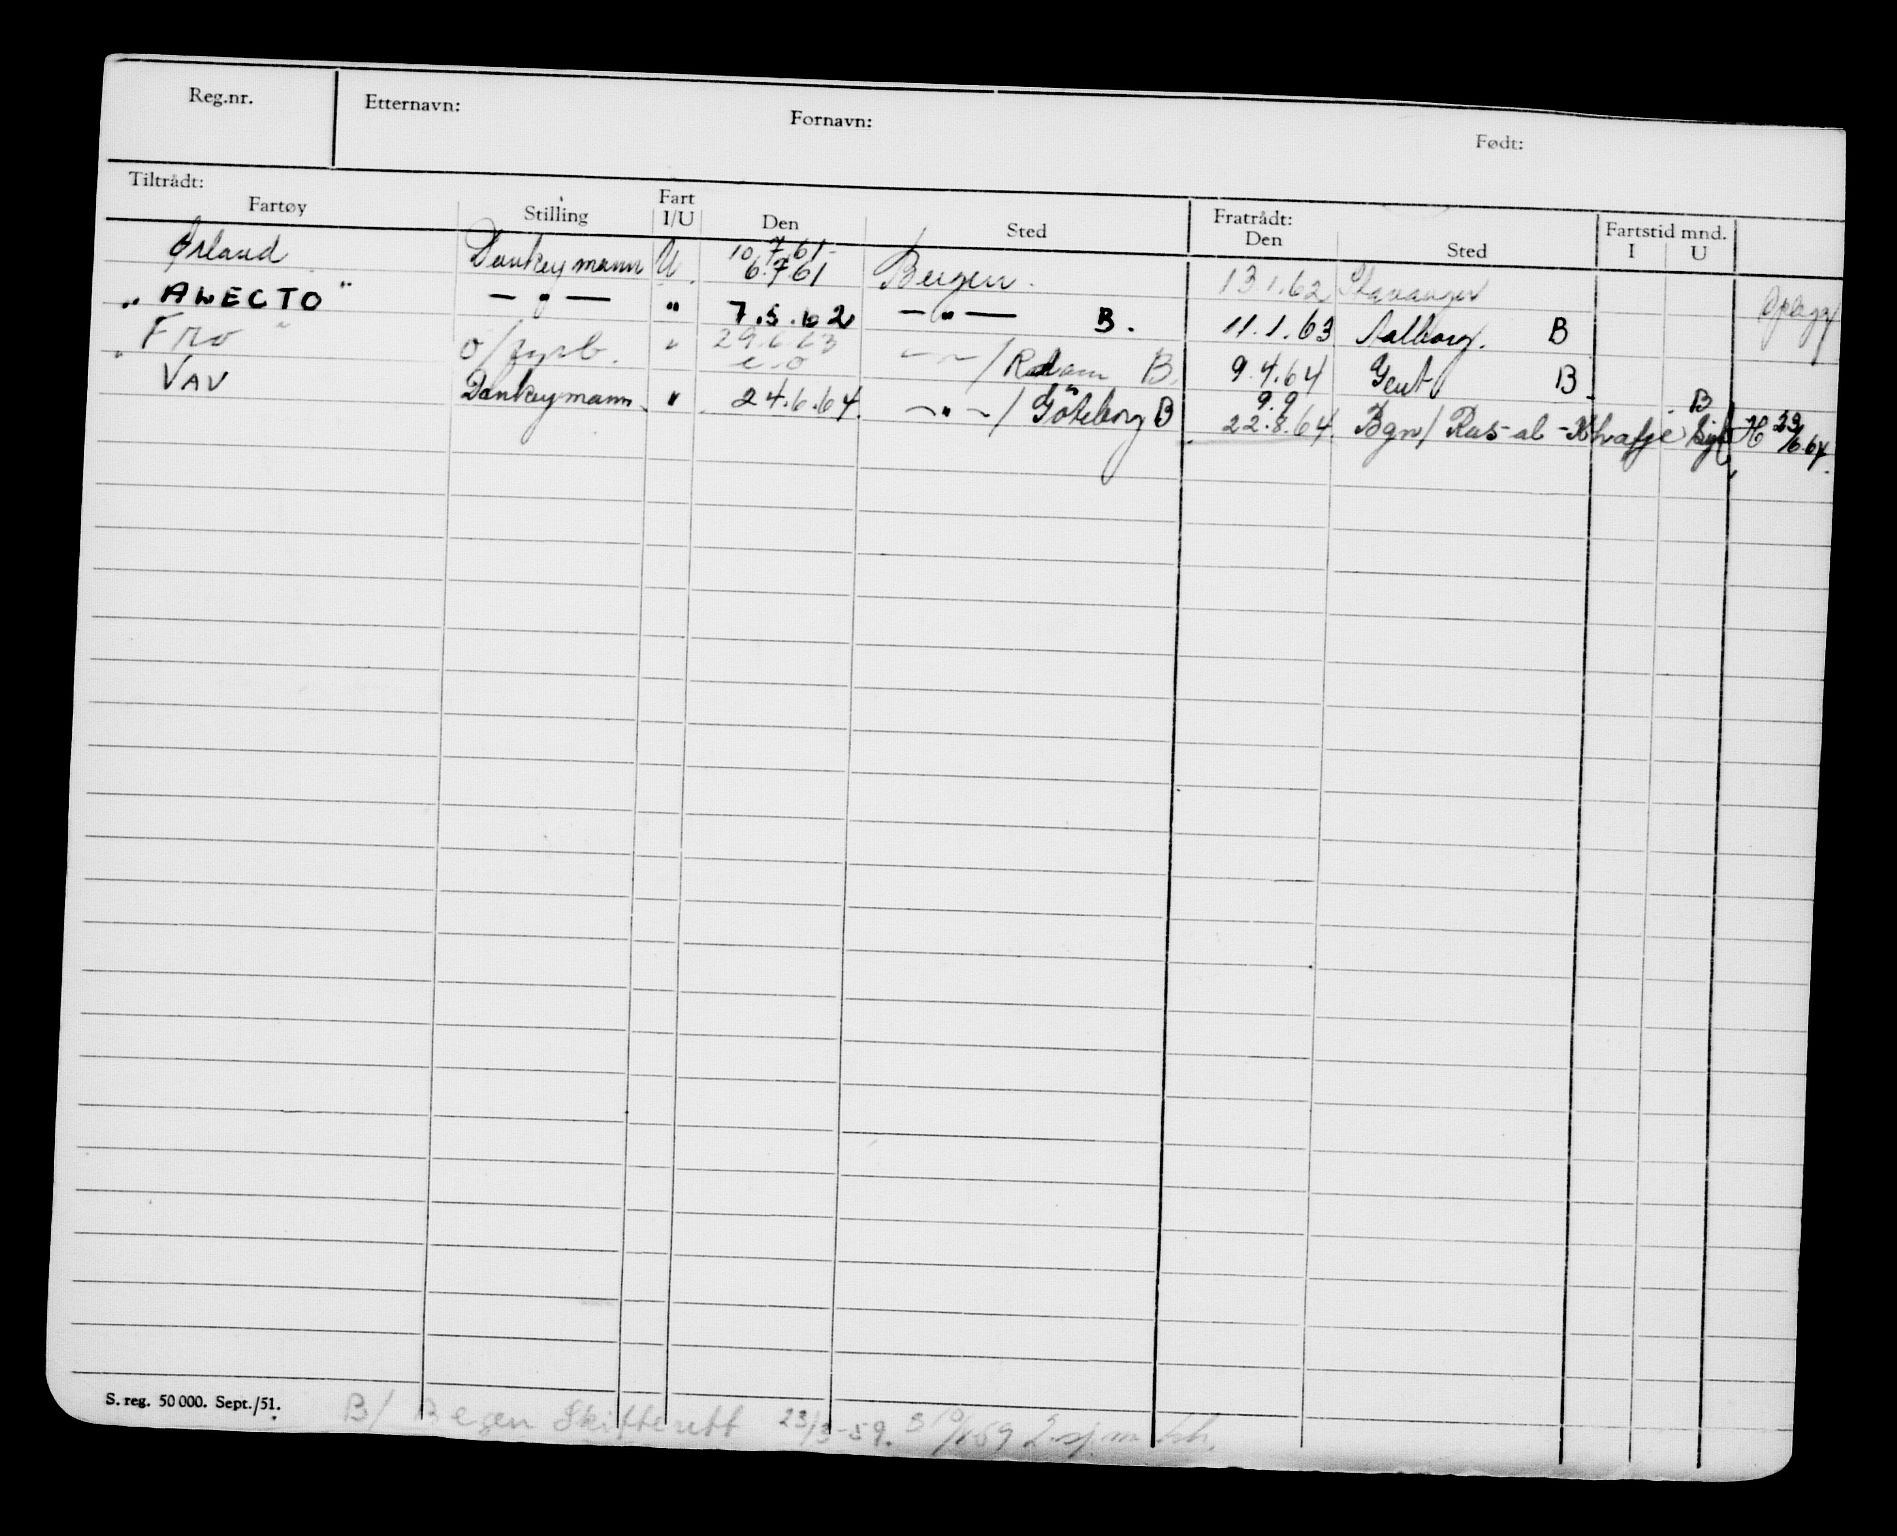 Reg.nr. Etternavn: Fornavn: Født:
Tiltrådt: Fratrådt:
Fartøy Stilling Fart I/U Den Sted Den Sted Fartstid mnd. I U
10.7.61
Ørland Donkeymann U 6.7.61 Bergen. 13 1.62 Stavanger Opplagg
„ ALECTO " — „ — " 7.5.62 — „ — B. 11.1.63 Aalborg. B
" Fro " o/fyrb. " — " — / Rdam B. 9.4.64 Gent B
9.9 B
VAV Donkeymann " 24.6.64. — " — / Göteborg B 22.8.64. Bgn / Ras-al-Khafje 23/6.64.
S. reg. 50 000. Sept./51.
B/ Bergen Skifterett 23/3-59.